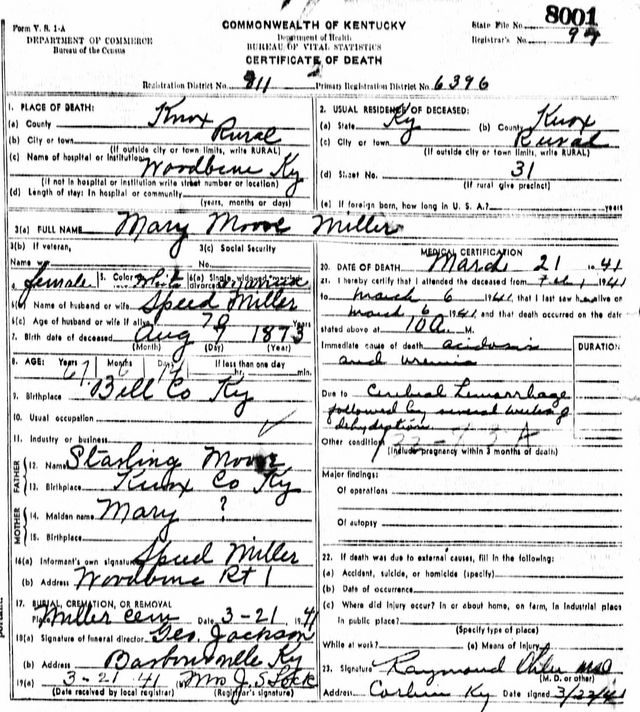 Form V. S. 1-A
DEPARTMENT OF COMMERCE
Bureau of the Census
COMMONWEALTH OF KENTUCKY
Department of Health
BUREAU OF VITAL STATISTICS
CERTIFICATE OF DEATH
8001
State File No.
Registrar's No.
Registration District No. 911 Primary Registration District No. 6396
1. PLACE OF DEATH:
(a) County Knox
(b) City or town Rural
(If outside city or town limits, write RURAL)
(c) Name of hospital or institution Woodbine Ky
(If not in hospital or institution write street number or location)
(d) Length of stay: In hospital or community
(years, months or days)
2. USUAL RESIDENCE OF DECEASED:
(a) State Ky (b) County Knox
(c) City or town Rural
(If outside city or town limits, write RURAL)
(d) Street No. 31
(If rural give precinct)
(e) If foreign born, how long in U. S. A.? years
3(a) FULL NAME Mary Moore Miller
3(b) If veteran, 3(c) Social Security
Name No.
female 5. Color White 6(a)
6(b) Name of husband or wife Speed Miller
6(c) Age of husband or wife if alive 79 Years
7. Birth date of deceased Aug 9 1873
(Month) (Day) (Year)
8. AGE: Years 67 Months Days If less than one day
hr. min.
9. Birthplace Bell Co Ky
10. Usual occupation
11. Industry or business
FATHER
12. Name Starling Moore
13. Birthplace Knox Co Ky
MOTHER
14. Maiden name Mary ?
15. Birthplace
16(a) Informant's own signature Speed Miller
(b) Address Woodbine Rt 1
17. BURIAL, CREMATION, OR REMOVAL
Place Miller cem Date 3-21 1941
18(a) Signature of funeral director Geo. Jackson
(b) Address Barbourville Ky
19(a) 3-21 41 Mrs J. S. Lock
(Date received by local registrar) (Registrar's signature)
MEDICAL CERTIFICATION
20. DATE OF DEATH March 21 1941
21. I hereby certify that I attended the deceased from Feb 1 1941
to March 6 1941 that I last saw h alive on
March 6 1941 and that death occurred on the date
stated above at 10 A. M.
Immediate cause of death acidosis
and uremia
DURATION
Due to Cerebral Hemorrhage
followed by several weeks of
dehydration
Other condition
(Include pregnancy within 3 months of death)
Major findings:
Of operations
Of autopsy
22. If death was due to external causes, fill in the following:
(a) Accident, suicide, or homicide (specify)
(b) Date of occurrence
(c) Where did injury occur? In or about home, on farm, in industrial place
in public place?
(Specify type of place)
While at work? (e) Means of injury
23. Signature Raymond
(M. D. or other)
Address Corbin Ky Date signed 3/22/41